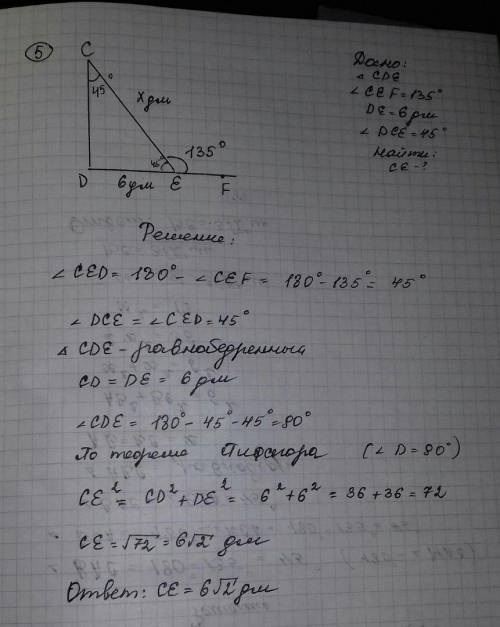 5
C
45°
x дм
45°
135°
D 6 дм E F
Дано:
△ CDE
∠CEF = 135°
DE = 6 дм
∠DCE = 45°
Найти:
CE - ?
Решение:
∠CED = 180° - ∠CEF = 180° - 135° = 45°
∠DCE = ∠CED = 45°
△ CDE - равнобедренный
CD = DE = 6 дм
∠CDE = 180° - 45° - 45° = 90°
По теореме Пифагора (∠D = 90°)
CE² = CD² + DE² = 6² + 6² = 36 + 36 = 72
CE = √72 = 6√2 дм
Ответ: CE = 6√2 дм